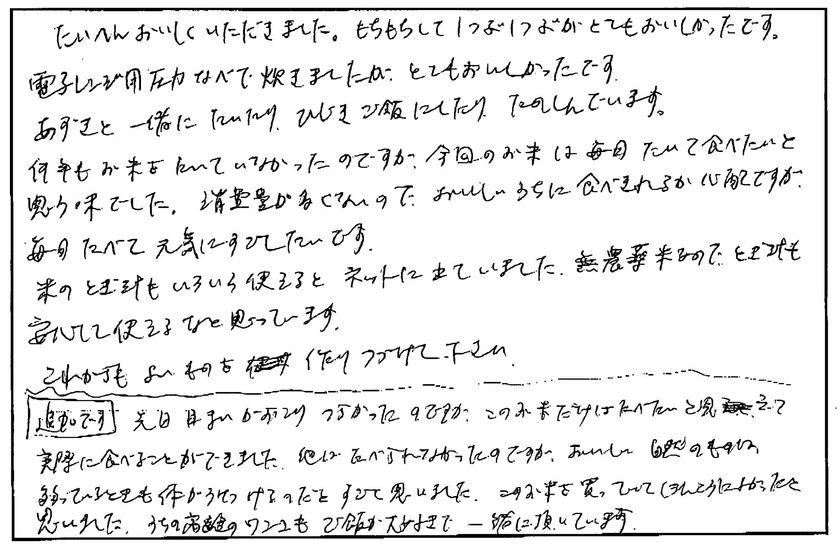 たいへんおいしくいただきました。もちもちして1つぶ1つぶがとてもおいしかったです。
電子レンジ用圧力なべで炊きましたが、とてもおいしかったです。
あずきと一緒にたいたり、ひじきご飯にしたり、たのしんでいます。
何年もお米をたいていなかったのですが、今回のお米は毎日たいて食べたいと
思う味でした。消費量が多くないので、おいしいうちに食べきれるか心配ですが、
毎日たべて元気にすごしたいです。
米のとぎ汁もいろいろ使えるとネットに出ていました。無農薬米なので、とぎ汁も
安心して使えるなと思っています。
これからもよいものを作りつづけて下さい。
追加です 先日目まいがおこりつらかったのですが、このお米だけはたべたいと思えて
実際に食べることができました。他はたべられなかったのですが、おいしい自然のものは
弱っているときも体がうけつけるのだとすごく思いました。このお米を買っていてほんとうによかったと
思いました。うちの高齢のワンコもご飯が大好きで一緒に頂いています。